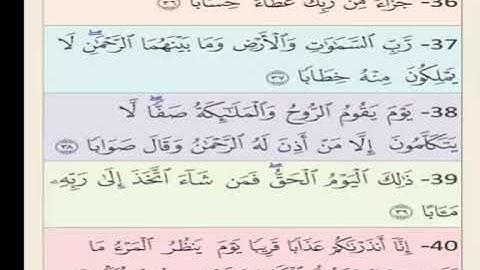 36- جَزَآءً مِّن رَّبِّكَ عَطَآءً حِسَابًا ٣٦
37- رَّبِّ ٱلسَّمَٰوَٰتِ وَٱلْأَرْضِ وَمَا بَيْنَهُمَا ٱلرَّحْمَٰنِۖ لَا
يَمْلِكُونَ مِنْهُ خِطَابًا ٣٧
38- يَوْمَ يَقُومُ ٱلرُّوحُ وَٱلْمَلَٰٓئِكَةُ صَفًّاۖ لَّا
يَتَكَلَّمُونَ إِلَّا مَنْ أَذِنَ لَهُ ٱلرَّحْمَٰنُ وَقَالَ صَوَابًا ٣٨
39- ذَٰلِكَ ٱلْيَوْمُ ٱلْحَقُّۖ فَمَن شَآءَ ٱتَّخَذَ إِلَىٰ رَبِّهِۦ
مَـَٔابًا ٣٩
40- إِنَّآ أَنذَرْنَٰكُمْ عَذَابًا قَرِيبًا يَوْمَ يَنظُرُ ٱلْمَرْءُ مَا